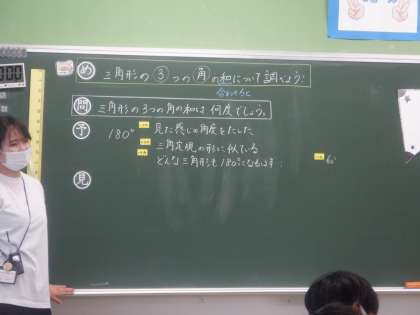 め 三角形の③つの角の和について調べよう!
合わせると
問 三角形の3つの角の和は何度でしょう。
予 180° 見た感じの角度をたした
三角定規の形に似ている
どんな三角形も180°になる
見